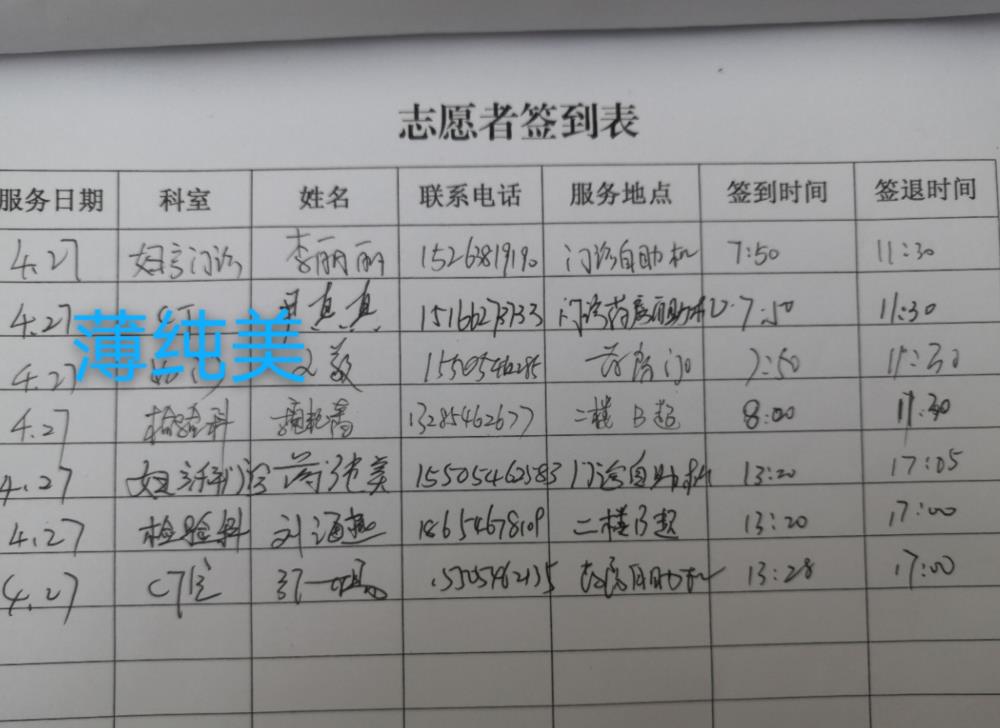 志愿者签到表
服务日期 科室 姓名 联系电话 服务地点 签到时间 签退时间
4.27 妇产门诊 李丽丽 15263819190 门诊自助机 7:50 11:30
4.27 真真 15166273733 门诊药房自助机 7:50 11:30
薄纯美
4.27 药房 7:50 11:30
4.27 检验科 13285462677 二楼B超 8:00 11:30
4.27 妇产科门诊 15505462583 门诊自助机 13:20 17:05
4.27 检验科 刘 18654678109 二楼B超 13:20 17:00
4.27 CT室 15505462135 药房自助机 13:28 17:00